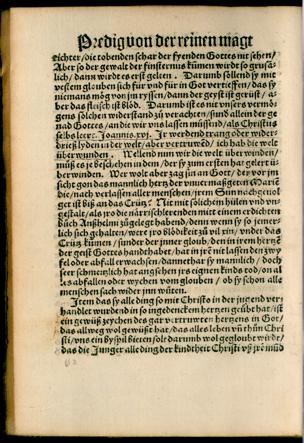 Predig von der reinen magt
richter / die tobenden schar der fyenden Gottes nit sehen /
Aber so der gewalt der finsternus kümen wurdt so grusä-
lich / dann wirdt es erst gelten. Darumb söllend sy mit
vestem glouben sich für vnd für in Got vertieffen / das sy
niemans mög von jm ryssen / dann der geist ist gerüst / a-
ber das fleisch ist blöd. Darumb ist es nit vnsers vermö-
gens sölchen widerstand zů verachten / sund allein der ge-
nad Gottes / an die wir vns lassen müssend / als Christus
selbs leert. Joannis.xvj. Jr werdend trang oder wider-
drieß lyden in der welt / aber vertruwend / ich hab die welt
überwunden. Wellend nun wir die welt überwinden /
můß es je beschehen in dem / der sy zum ersten hat gelert ü-
berwinden. Wer wolt aber zag sin an Gott / der vor jm
sicht gon das mannlich hertz der vnuermaßgeten Mariē
die / nach verlassen aller menschen / jrem Sun nachgeuol-
get ist biß an das Crütz? Nit mit sölichem hülen vnd vn-
gestalt / als jro die närrischlerenden mit einem erdichten
bůch Anßhelmi zůgelegt habend / denn wenn sy so jemer-
lich sich gehalten / were jro blödikeit zů vil xin / vnder das
Crütz kümen / sunder der jnner gloub / den in irem hertzē
der geist Gottes handthabet / hat in jrē nit lassen den zwy
fel oder abfall erwachsen / dannethar sy mannlich / doch
seer schmertzlich hat angsehen jrs eignen kinds tod / on al
les abfallen oder wychen vom glouben / ob sy schon alle
menschen sach wider jnn wüten.
Item das sy alle ding so mit Christo in der jugend ver-
handlet wurdend in so ingedenckem hertzen geübt hat / ist
ein gewüß zeychen des gar vertruwten hertzens in Got /
das allweg wol gewüßt hat / das alles leben vñ thůn Chri
sti / vns ein byspil bieten solt darumb wol gegloubt wirdt /
das die Junger alle ding der kindtheit Christi vß jrē mūd